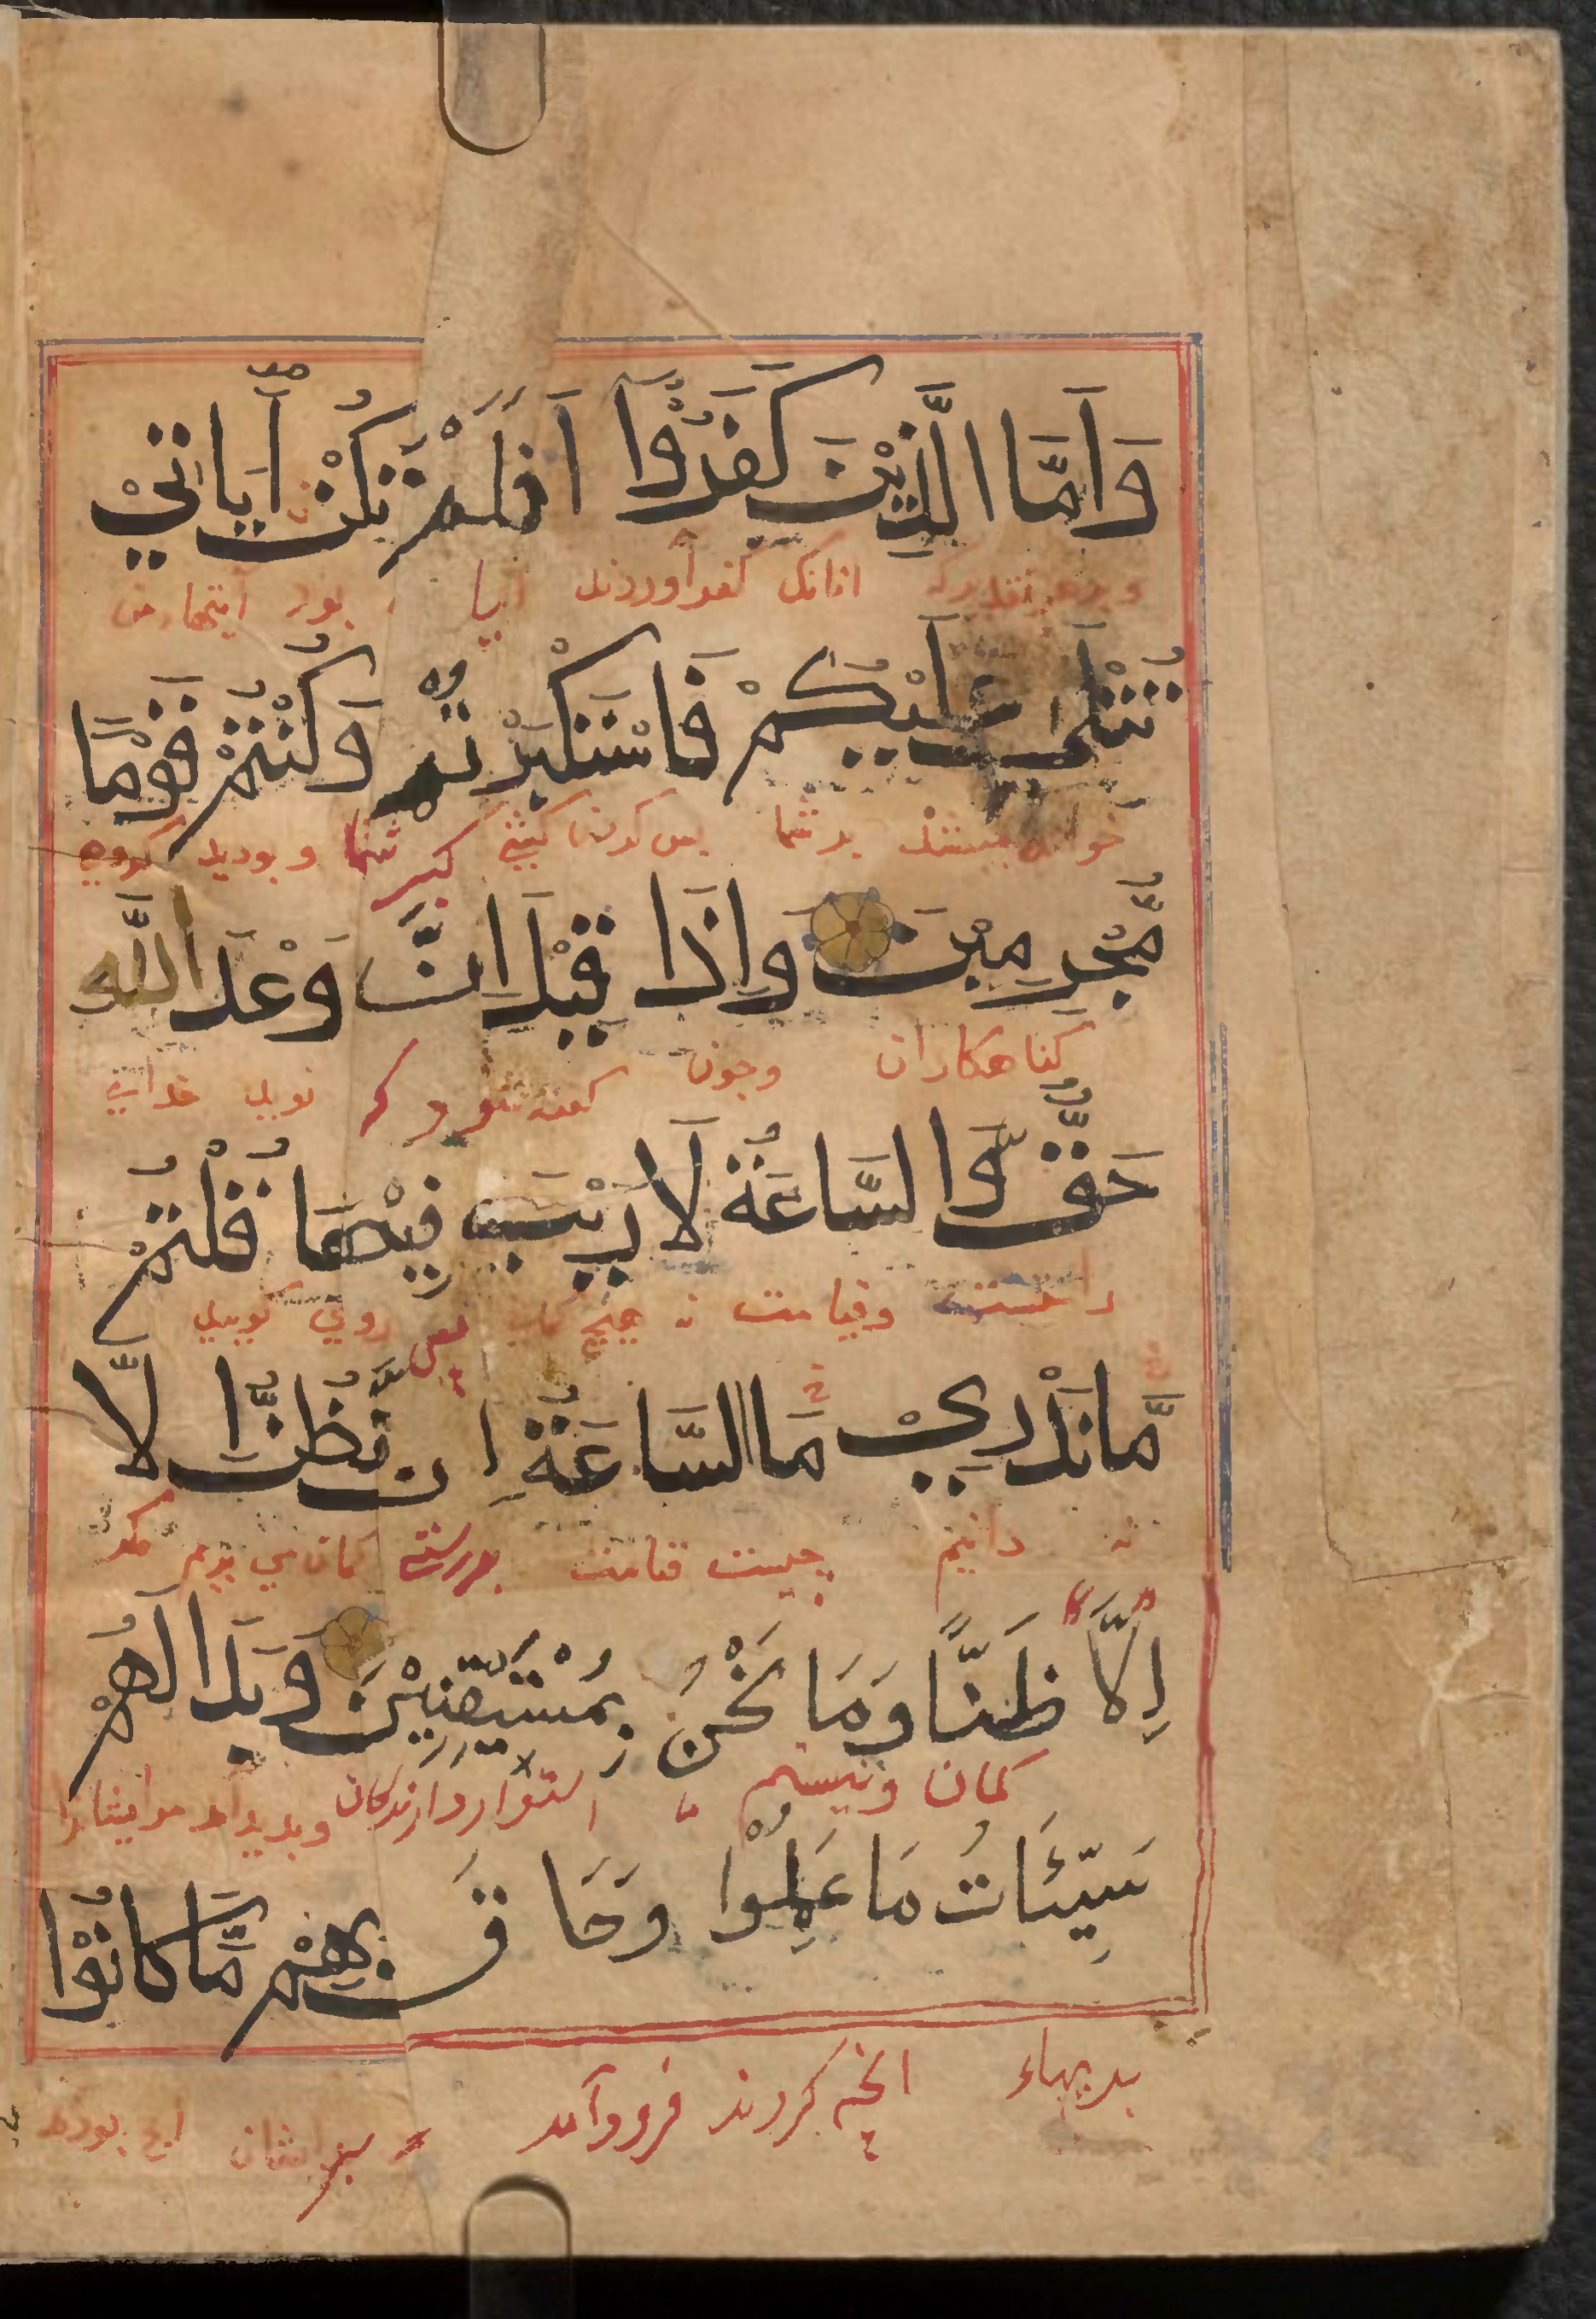 وَاَمَّا الَّذِيْنَ كَفَرُوْٓا اَفَلَمْ تَكُنْ اٰيَاتِيْ
انانك كفر آوردند ايا بود آيتهاء من
تُتْلٰى عَلَيْكُمْ فَاسْتَكْبَرْتُمْ وَكُنْتُمْ قَوْمًا
بر شما پس كردن كشي كبر شما و بوديد كروهي
مُّجْرِمِيْنَ وَاِذَا قِيْلَ اِنَّ وَعْدَ اللّٰه
كناهكاران وچون كفته شود كه نويد خداي
حَقٌّ وَّا لسَّاعَةُ لَا رَيْبَ فِيْهَا قُلْتُمْ
راست وقيامت نه هيچ دروي كوييد
مَّا نَدْرِيْ مَا السَّاعَةُ اِنْ نَّظُنُّ لَّا
نه دانيم چيست قيامت بدرستي كمان مي بريم مكر
اِلَّا ظَنًّا وَمَا نَحْنُ بِمُسْتَيْقِنِيْنَ وَبَدَا لَهُمْ
كمان ونيستيم ما استوار دارندكان وپديد آمد مرايشانرا
سَيِّئَاتُ مَا عَمِلُوْا وَحَاقَ بِهِمْ مَّا كَانُوْا
بديهاء انچه كردند فروو آمد بر ايشان انچه بودند